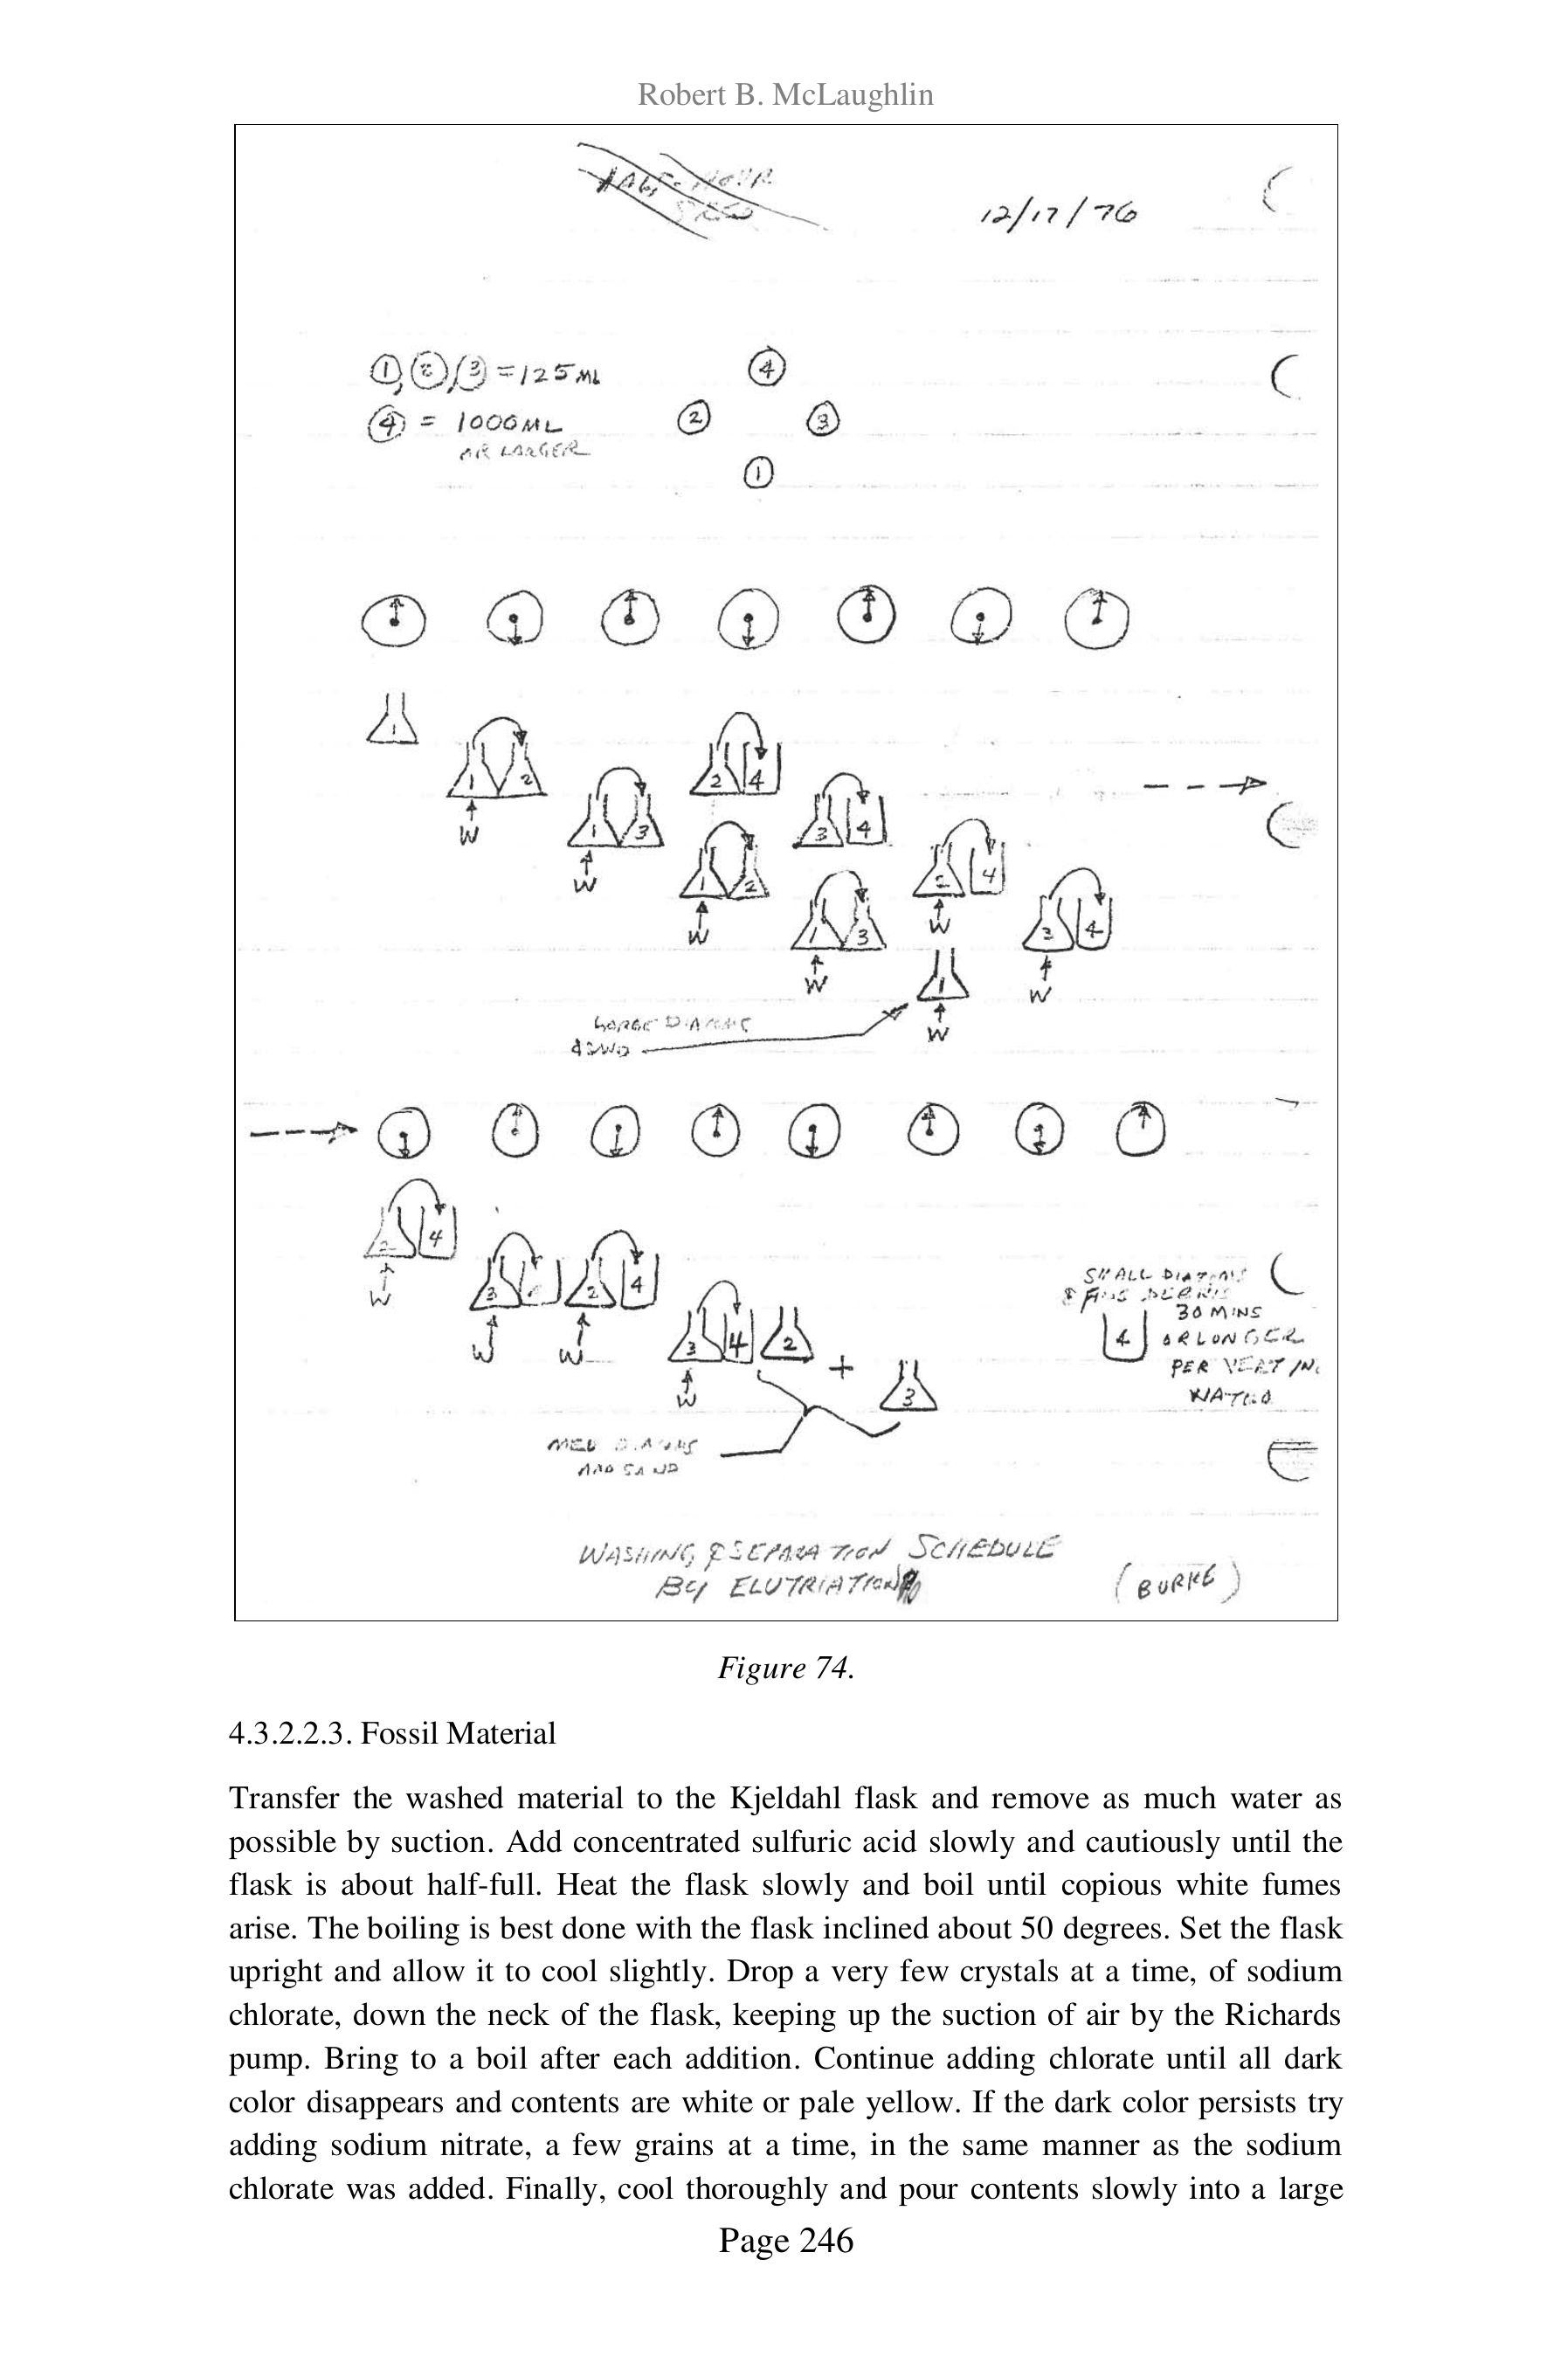 Robert B. McLaughlin
HALF-HOUR
12/17/76
①,②,③ = 125 ML
④ = 1000 ML
OR LARGER
④
② ③
①
1
1 2
W
2 4
1 3
W
3 4
1 2
W
2 4
W
1 3
W
3 4
W
1
W
LARGE DIATOMS
& SAND
2 4
W
3
W
2 4
W
3 4
W
2
+
3
SMALL DIATOMS
& FINE DEBRIS
30 MINS
4 OR LONGER
PER VERT IN.
WATER
MED DIATOMS
AND SAND
WASHING & SEPARATION SCHEDULE
BY ELUTRIATION
(BURKE)
Figure 74.
4.3.2.2.3. Fossil Material
Transfer the washed material to the Kjeldahl flask and remove as much water as
possible by suction. Add concentrated sulfuric acid slowly and cautiously until the
flask is about half-full. Heat the flask slowly and boil until copious white fumes
arise. The boiling is best done with the flask inclined about 50 degrees. Set the flask
upright and allow it to cool slightly. Drop a very few crystals at a time, of sodium
chlorate, down the neck of the flask, keeping up the suction of air by the Richards
pump. Bring to a boil after each addition. Continue adding chlorate until all dark
color disappears and contents are white or pale yellow. If the dark color persists try
adding sodium nitrate, a few grains at a time, in the same manner as the sodium
chlorate was added. Finally, cool thoroughly and pour contents slowly into a large
Page 246